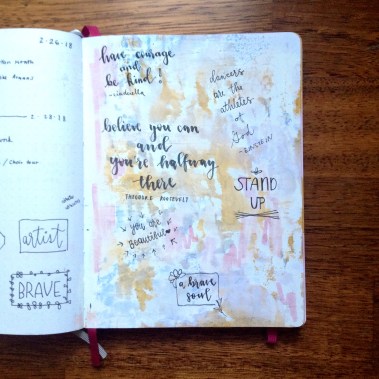 2-26-18
2-28-18
artist
BRAVE
have courage
and
be kind!
~cinderella
dancers
are the
athletes
of
God
believe you can
and
you're halfway
there
THEODORE ROOSEVELT
STAND
UP
you are
Beautiful
a brave
soul